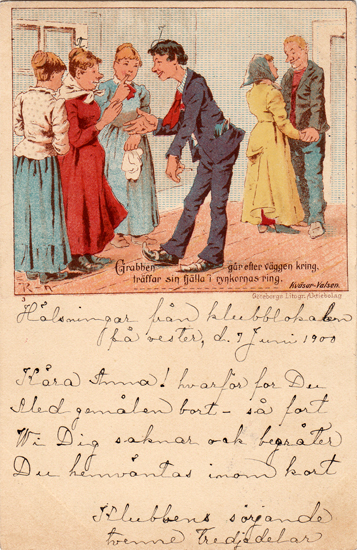 Grabben går efter väggen kring,
träffar sin fjälla i rynkornas ring.
Kväsar-Valsen.
Göteborgs Litogr. Aktiebolag
Hälsningar från klubblokalen
på vester, d. 7 Juni 1900
Kära Anna! hvarför for Du
Med gemålen bort – så fort
Wi Dig saknar ock begråter
Du hemväntas inom kort
Klubbens sörjande
tvenne Tredjedelar